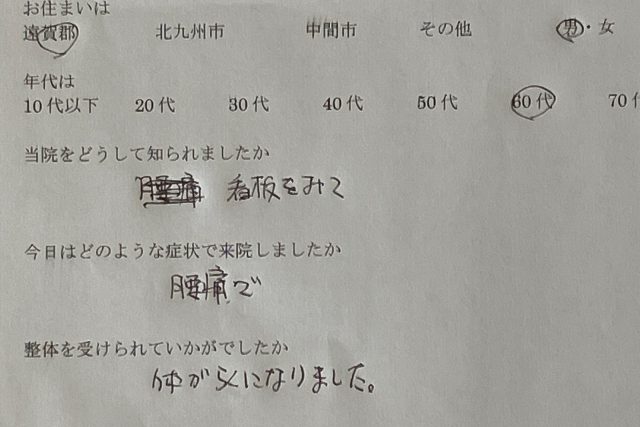 お住まいは
遠賀郡 北九州市 中間市 その他 男・女
年代は
10代以下 20代 30代 40代 50代 60代 70代
当院をどうして知られましたか
腰痛 看板をみて
今日はどのような症状で来院しましたか
腰痛で
整体を受けられていかがでしたか
体がらくになりました。